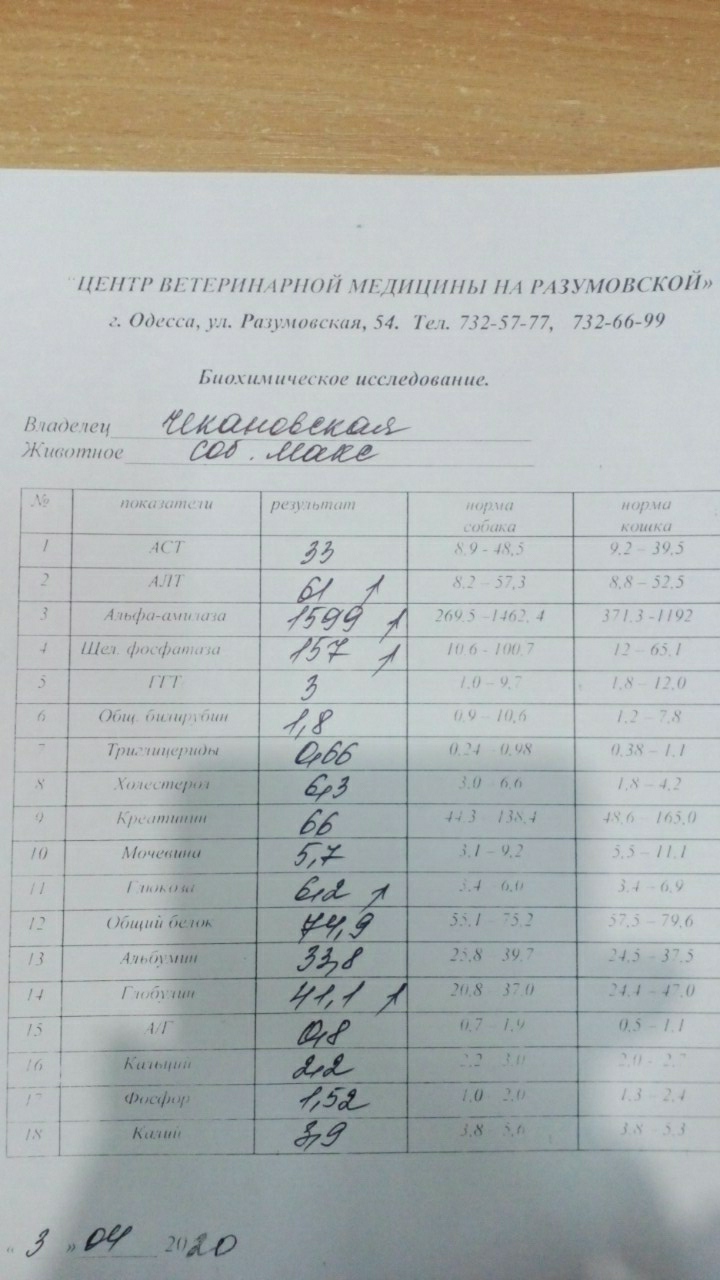 "ЦЕНТР ВЕТЕРИНАРНОЙ МЕДИЦИНЫ НА РАЗУМОВСКОЙ»
г. Одесса, ул. Разумовская, 54. Тел. 732-57-77, 732-66-99
Биохимическое исследование.
Владелец Чекановская
Животное соб. Макс
№ показатели результат норма собака норма кошка
1 АСТ 33 8,9 - 48,5 9,2 – 39,5
2 АЛТ 61 ↑ 8,2 – 57,3 8,8 – 52,5
3 Альфа-амилаза 1599 ↑ 269,5 –1462, 4 371,3 -1192
4 Щел. фосфатаза 157 ↑ 10,6 - 100,7 12 – 65,1
5 ГГТ 3 1,0 – 9,7 1,8 – 12,0
6 Общ. билирубин 1,8 0,9 – 10,6 1,2 – 7,8
7 Триглицериды 0,66 0,24 – 0,98 0,38 – 1,1
8 Холестерол 6,3 3,0 – 6,6 1,8 – 4,2
9 Креатинин 66 44,3 – 138,4 48,6 – 165,0
10 Мочевина 5,7 3,1 – 9,2 5,5 – 11,1
11 Глюкоза 6,2 ↑ 3,4 – 6,0 3,4 – 6,9
12 Общий белок 74,9 55,1 – 75,2 57,5 – 79,6
13 Альбумин 33,8 25,8 – 39,7 24,5 – 37,5
14 Глобулин 41,1 ↑ 20,8 – 37,0 24,4 – 47,0
15 А/Г 0,8 0,7 – 1,9 0,5 – 1,1
16 Кальций 2,2 2,2 – 3,0 2,0 – 2,7
17 Фосфор 1,52 1,0 – 2,0 1,3 – 2,4
18 Калий 3,9 3,8 – 5,6 3,8 – 5,3
« 3 » 04 2020